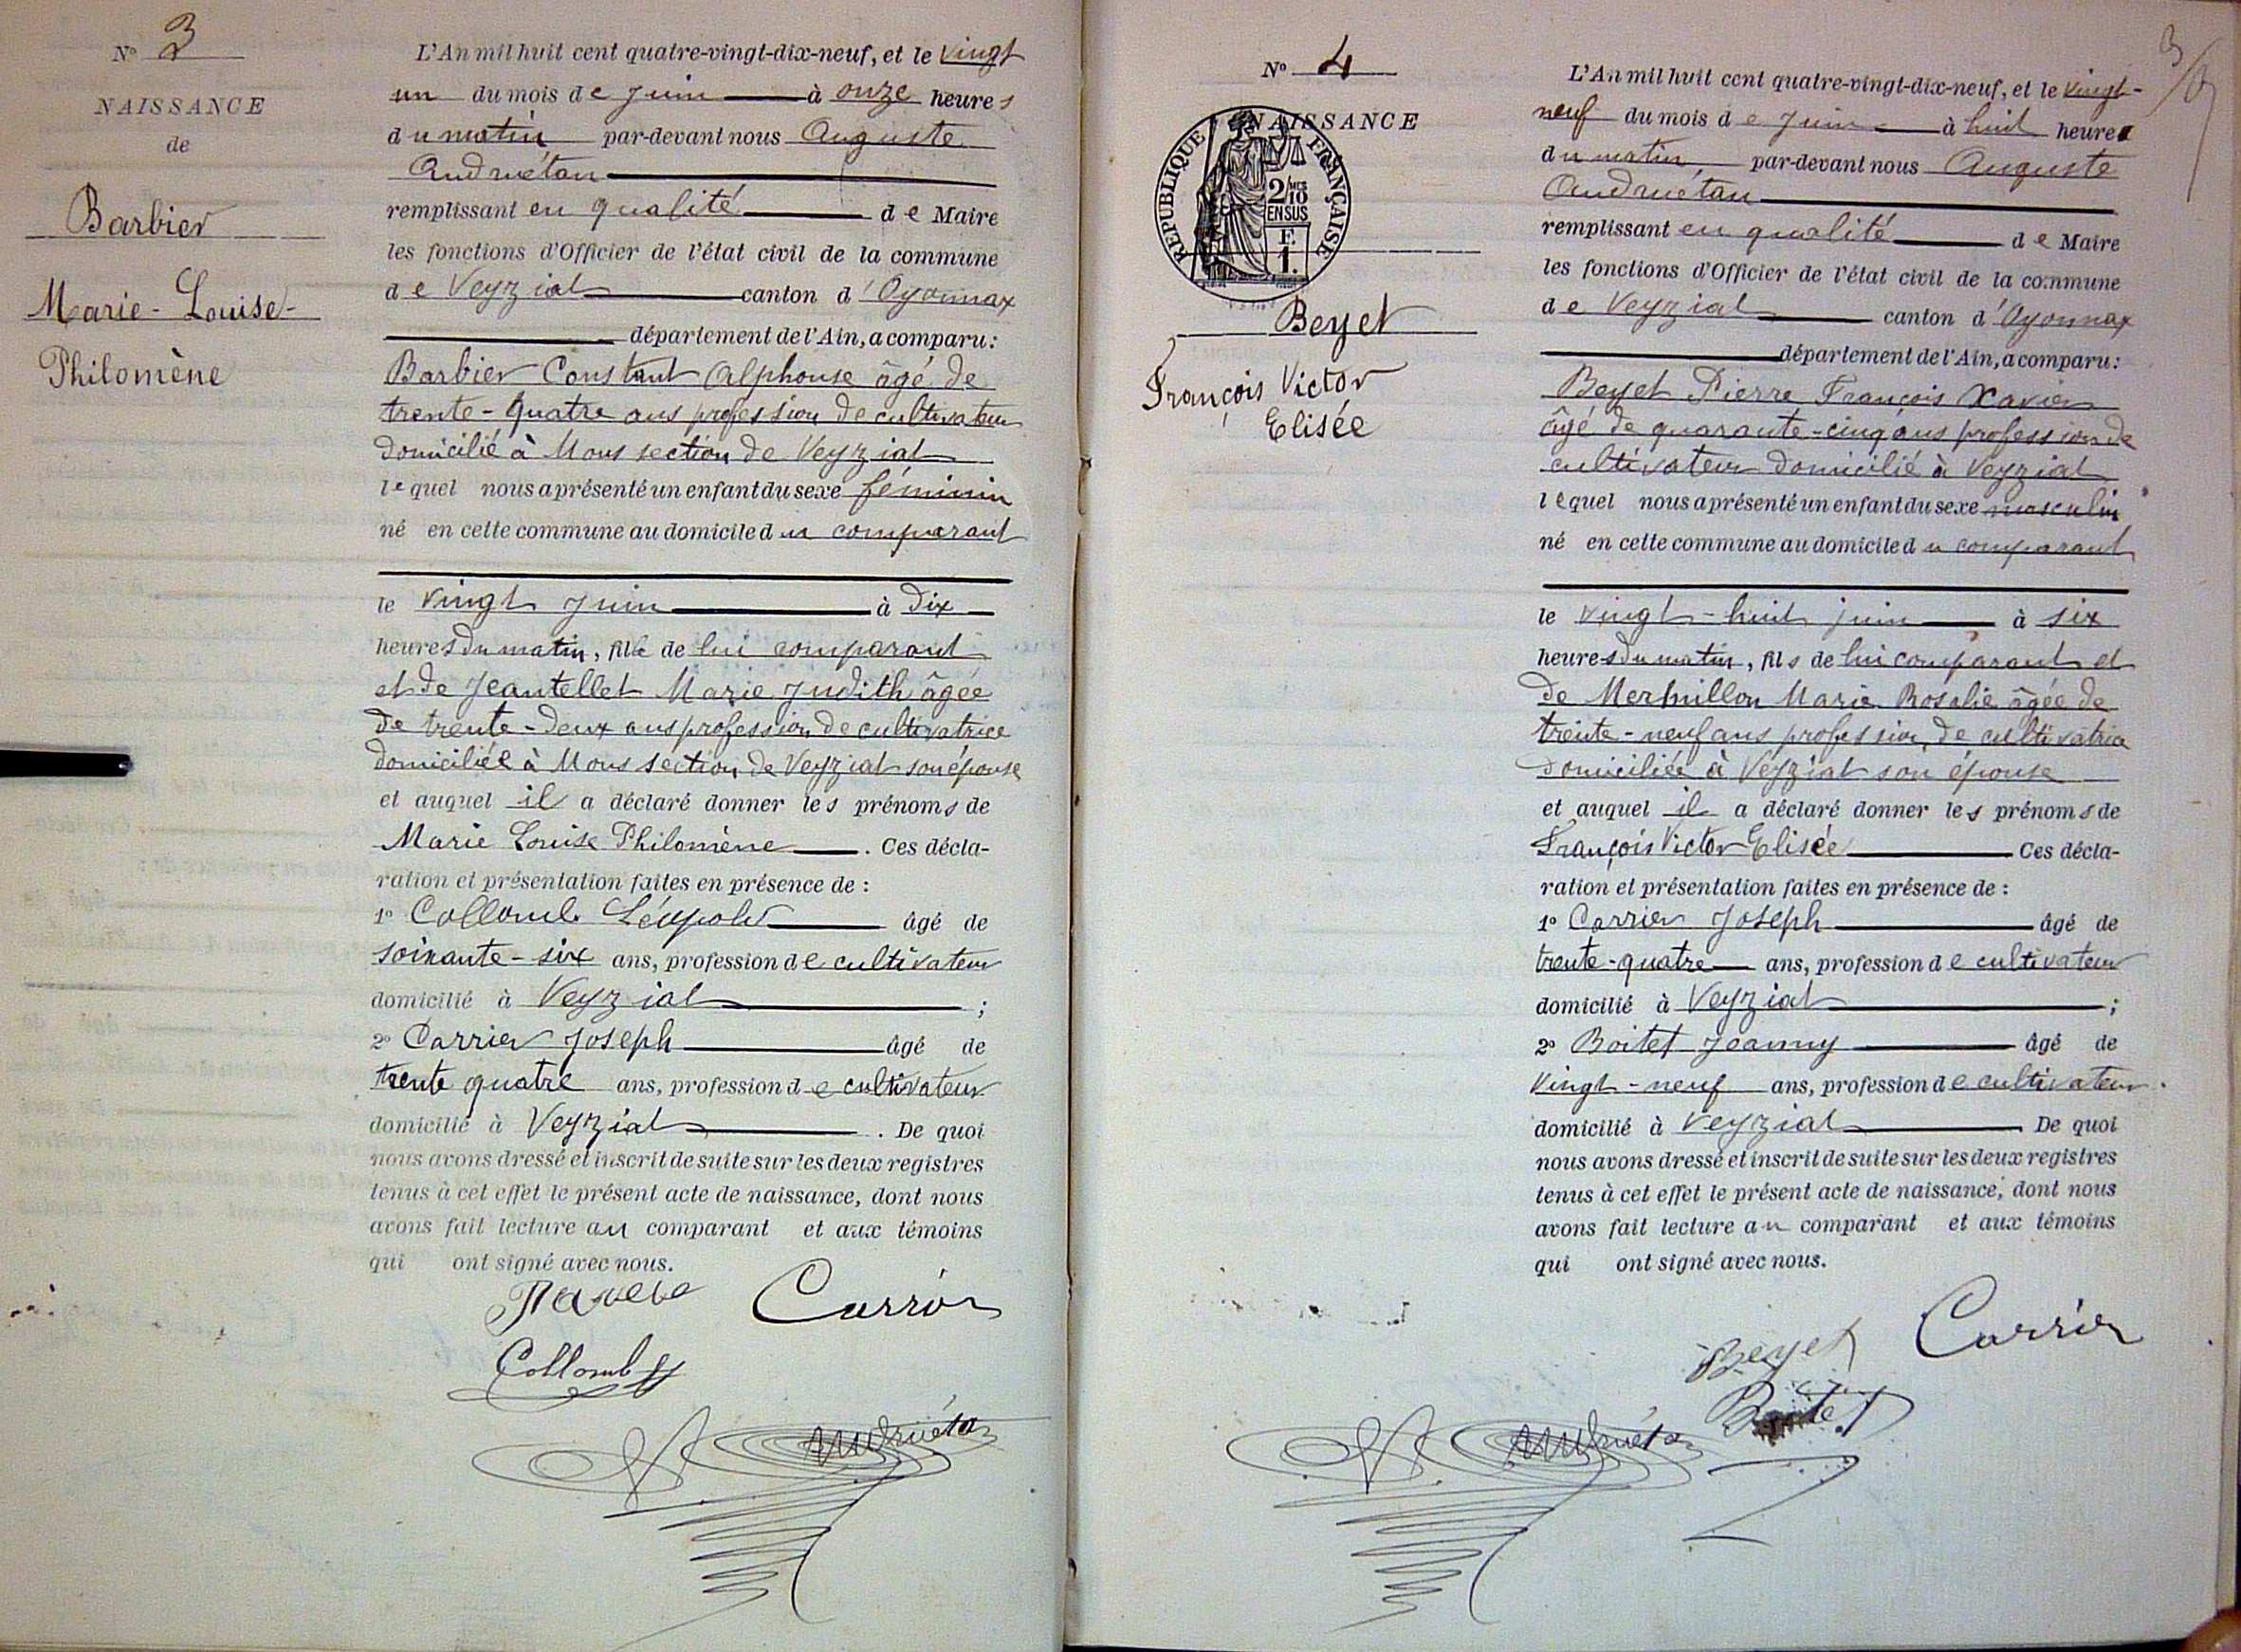 N° 3
NAISSANCE
de
Barbier
Marie-Louise-
Philomène
L'An mil huit cent quatre-vingt-dix-neuf, et le vingt
un du mois de Juin à onze heures
du matin par-devant nous Auguste
Andruétan
remplissant en qualité de Maire
les fonctions d'Officier de l'état civil de la commune
de Veyziat canton d'Oyonnax
département de l'Ain, a comparu:
Barbier Constant Alphonse âgé de
trente-quatre ans profession de cultivateur
domicilié à Mons section de Veyziat
lequel nous a présenté un enfant du sexe féminin
né en cette commune au domicile du comparant
le vingt Juin à dix
heures du matin, fille de lui comparant
et de Jeantellet Marie Judith âgée
de trente-deux ans profession de cultivatrice
domiciliée à Mons section de Veyziat son épouse
et auquel il a déclaré donner les prénoms de
Marie Louise Philomène. Ces décla-
ration et présentation faites en présence de :
1° Collomb Léopold âgé de
soixante-six ans, profession de cultivateur
domicilié à Veyziat ;
2° Carrier Joseph âgé de
trente quatre ans, profession de cultivateur
domicilié à Veyziat. De quoi
nous avons dressé et inscrit de suite sur les deux registres
tenus à cet effet le présent acte de naissance, dont nous
avons fait lecture au comparant et aux témoins
qui ont signé avec nous.
Carrier
Collomb
Andruétan
3
N° 4
NAISSANCE
REPUBLIQUE FRANÇAISE
2/10 MES
EN SUS
F.
1.
Beyet
François Victor
Elisée
L'An mil huit cent quatre-vingt-dix-neuf, et le vingt-
neuf du mois de Juin à huit heures
du matin par-devant nous Auguste
Andruétan
remplissant en qualité de Maire
les fonctions d'Officier de l'état civil de la commune
de Veyziat canton d'Oyonnax
département de l'Ain, a comparu:
Beyet Pierre François Xavier
âgé de quarante-cinq ans profession de
cultivateur domicilié à Veyziat
lequel nous a présenté un enfant du sexe masculin
né en cette commune au domicile du comparant
le vingt-huit juin à six
heures du matin, fils de lui comparant et
de Mermillon Marie Rosalie âgée de
trente-neuf ans profession de cultivatrice
domiciliée à Veyziat son épouse
et auquel il a déclaré donner les prénoms de
François Victor Elisée Ces décla-
ration et présentation faites en présence de :
1° Carrier Joseph âgé de
trente-quatre ans, profession de cultivateur
domicilié à Veyziat ;
2° Boitet Jeanny âgé de
vingt-neuf ans, profession de cultivateur.
domicilié à Veyziat De quoi
nous avons dressé et inscrit de suite sur les deux registres
tenus à cet effet le présent acte de naissance, dont nous
avons fait lecture au comparant et aux témoins
qui ont signé avec nous.
Beyet Carrier
Boitet
Andruétan